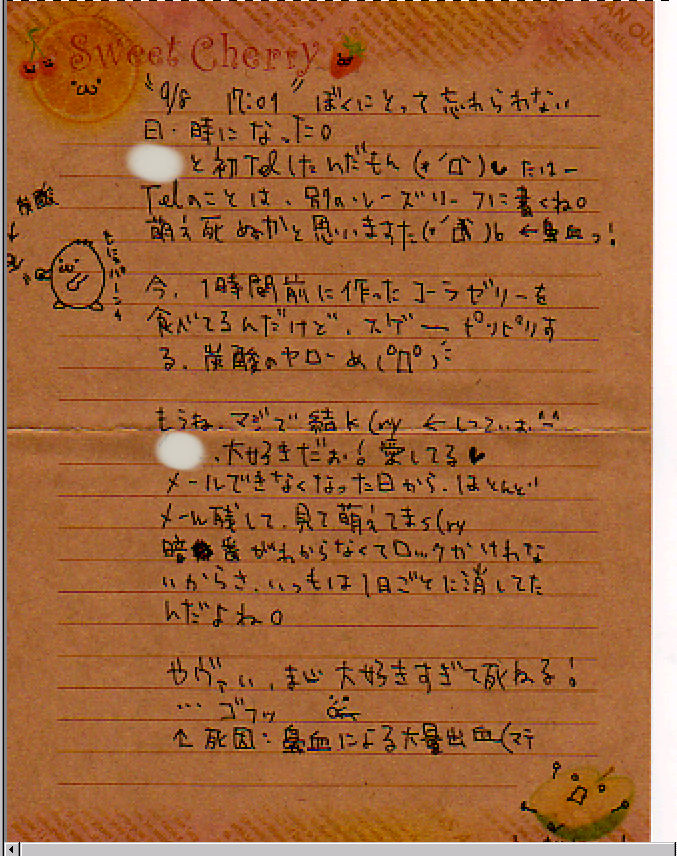 Sweet Cherry
"9/8 17:09" ぼくにとって忘れられない
日・時になった。
と初Telしたんだもん(*´Д`)♥たはー
Telのことは、別のルーズリーフに書くね。
萌え死ぬかと思いますた(*´Д`)b ←鼻血っ!
炭酸
今、1時間前に作ったコーラゼリーを
食べてるんだけど、スゲーピリピリす
る、炭酸のヤローめ(゚Д゚)
もうね、マジで結k(ry ←しつこいお^^
、大好きだお!愛してる♥
メールできなくなった日から、ほとんど
メール残して、見て萌えてまs(ry
暗番がわからなくてロックかけれな
いからさ、いつもは1日ごとに消してた
んだよね。
やヴァい、まじ大好きすぎて死ねる!
…ゴフッ
↑死因:鼻血による大量出血(マテ